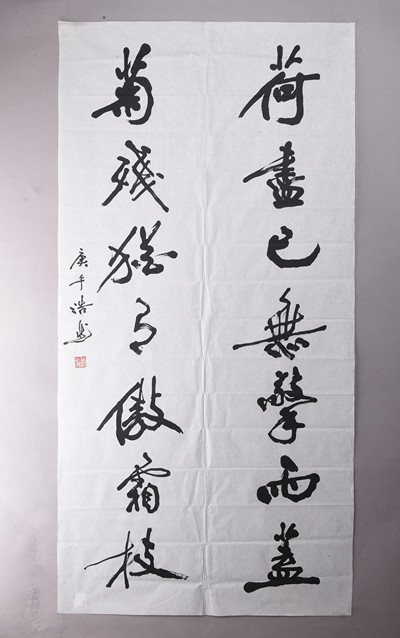 荷盡已無擎雨蓋
菊殘猶有傲霜枝
庚午浩